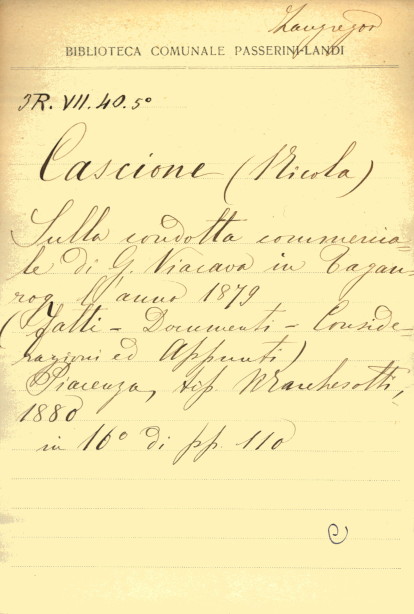 BIBLIOTECA COMUNALE PASSERINI-LANDI
JR. VII. 40. 5°
Cascione (Nicola)
Sulla condotta commercia-
le di G. Viacava in Tagan-
rog l'anno 1879
(Fatti - Documenti - Conside-
razioni ed Appunti)
Piacenza, tip. Marchesotti,
1880
in 16° di pp. 110